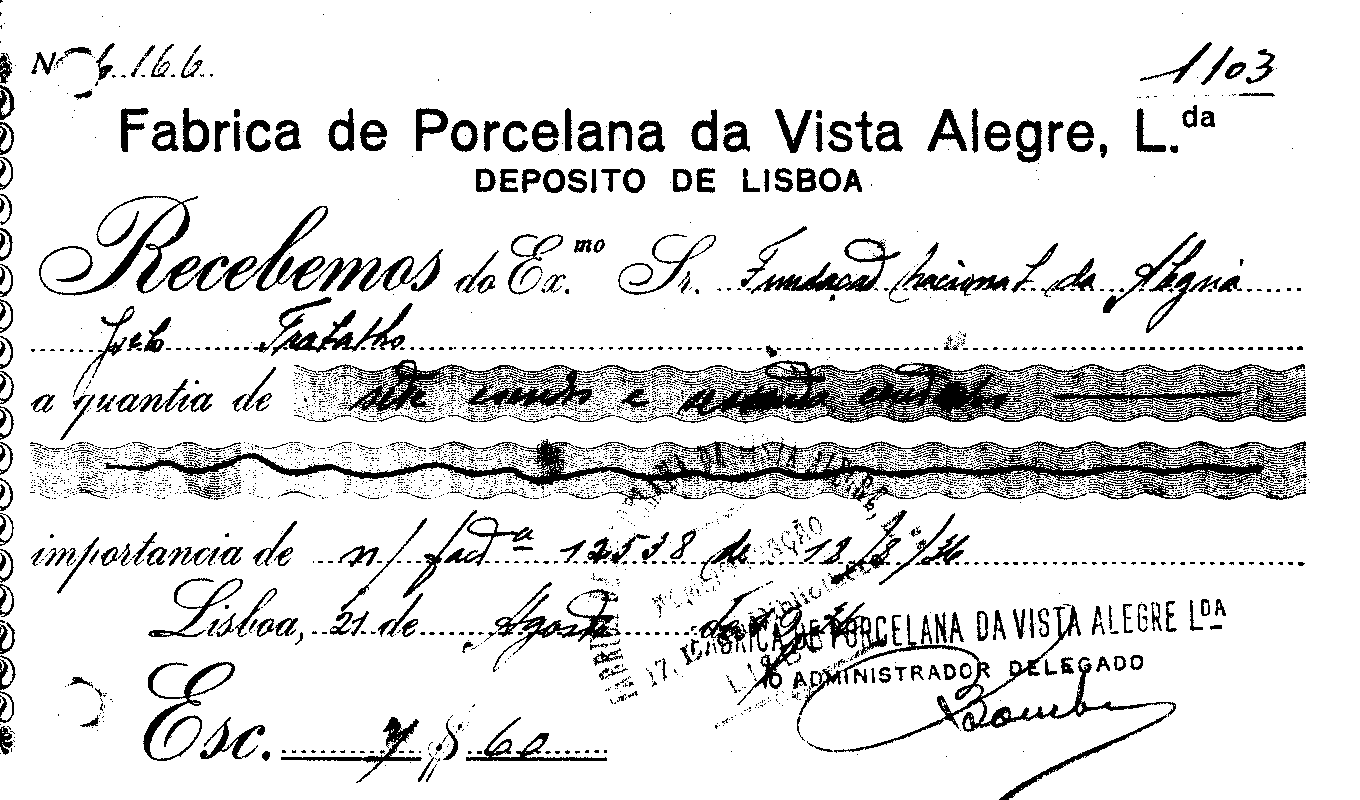 Nº 6.166. 1103
Fabrica de Porcelana da Vista Alegre, L.da
DEPOSITO DE LISBOA
Recebemos do Ex.mo Sr. Fundação Nacional da
a quantia de sete escudos e sessenta centavos
importancia de n/ fact.ª 12538 de 18/8º/36
Lisboa, 21 de Agosto de 1936
FABRICA DE PORCELANA DA VISTA ALEGRE LDA
O ADMINISTRADOR DELEGADO
Esc. 7$60